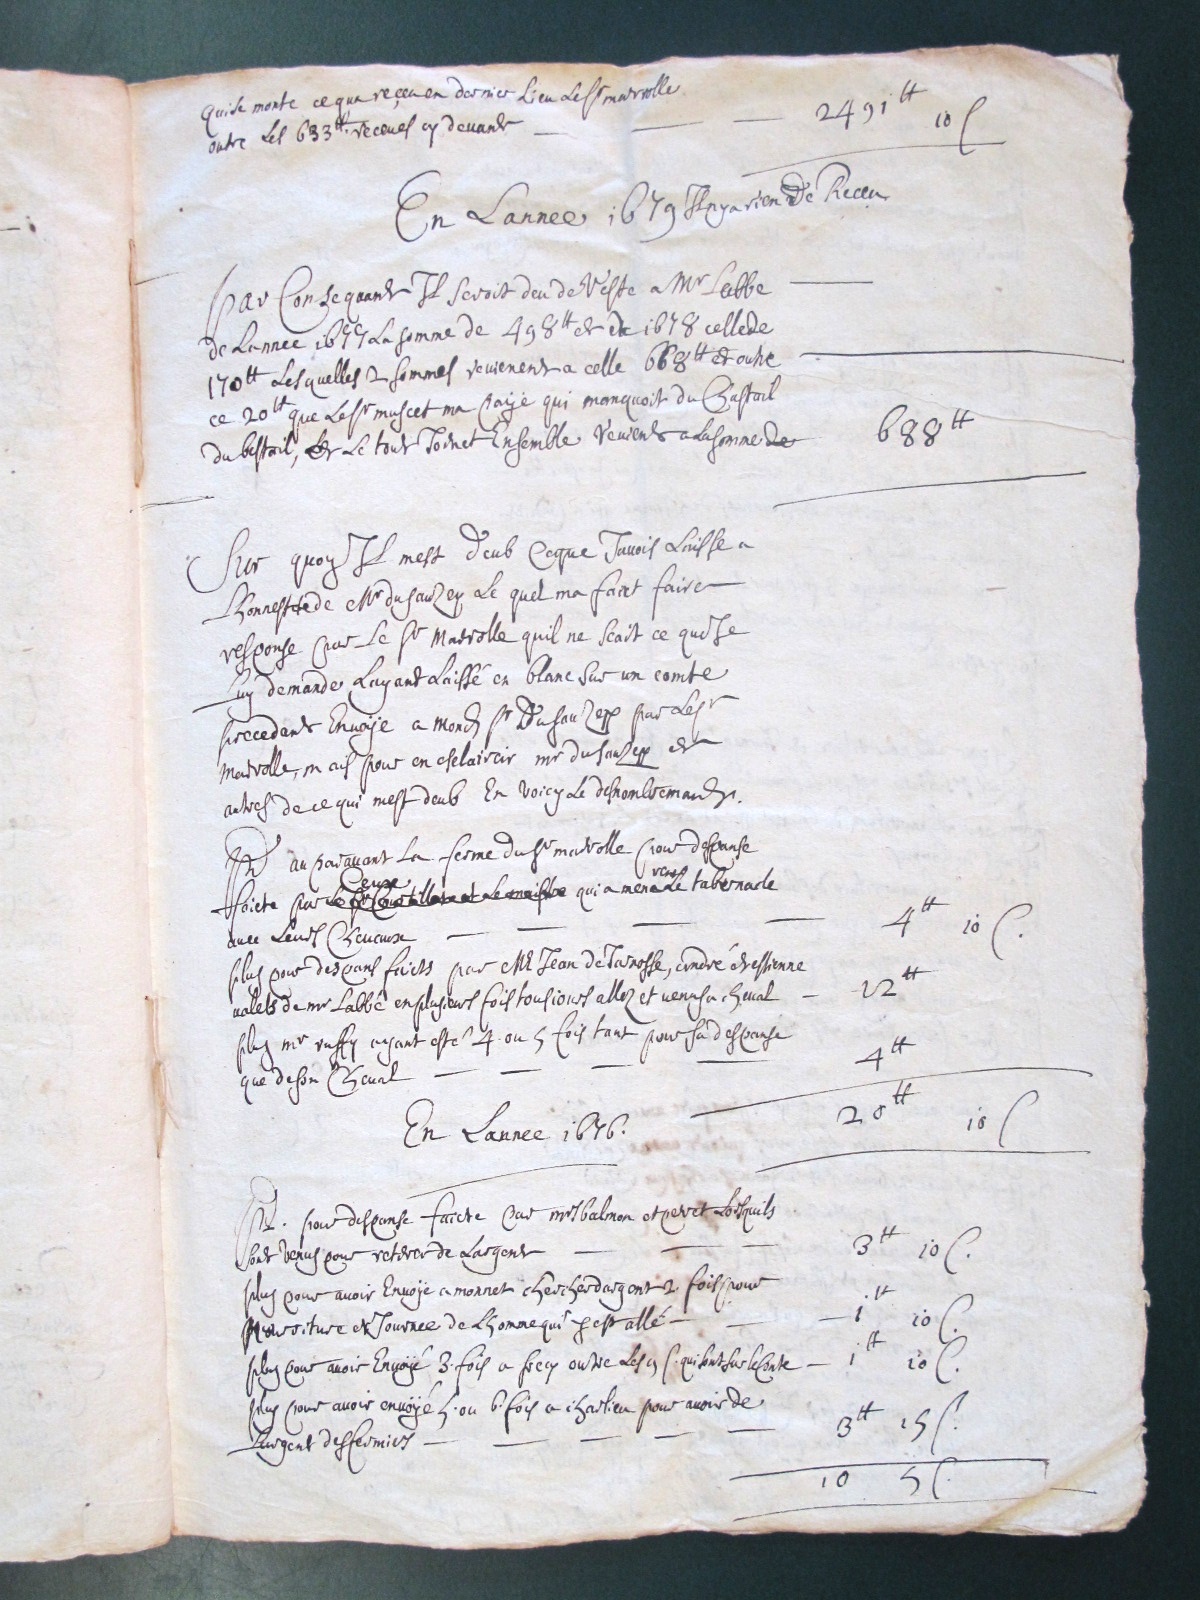 qui se monte ce qua receu en dernier Lieu Le sr marolle
outre Les 633tt receues cy devant — — — 2491tt 10 s
En Lannee 1679 Il ny a rien De Receu
Par Consequant Il seroit deu de Reste a Mr Labbe
de Lannee 1677 La somme de 498tt et de 1678 celle de
170tt Lesquelles 2 sommes revienent a celle 668tt et outre
ce 20tt que Le sr muscet ma paÿe qui manquoit du Chastail
du bestail, et Le tout Joinct Ensemble Revient a La somme de 688tt
Sur quoy Il mest Deub ce que Javois Laisse a
Lhonnesteté de Mr dusauzey Le quel ma faict faire
response par Le sr Marolle quil ne scait ce que Je
Luy demande Layant Laissé en blanc sur un comte
precedent Envoÿe a Mond sr Dusauzey par Le sr
Marolle, mais pour en esclaircir mr dusauzey et
autres de ce qui mest deub En voicy Le desnombrement.
Pr au paravant La ferme du sr marolle pour despanse
faicte par ceux qui a mene vers Le tabernacle
avec Leurs Chevaux — — — — 4tt 10 s.
plus pour despans faicts par Me Jean de Tarosse, andré et estienne
valets de mr Labbé en plusieurs fois tousiours allez et venus a cheval — 12tt
plus mr ruffy ayant esté 4 ou 5 fois tant pour sa despanse
que de son Cheval — — — — 4tt
20tt 10 s
En Lannee 1676.
Pr. pour despanse faicte par mrs balmon et peret Lorsquils
sont venus pour retirer de Largent — — — 3tt 10 s.
plus pour avoir Envoÿe a monnet chercher dargent 2 fois pour
voiture et Journee de Lhomme qui y est allé — — — 1tt 10 s.
plus pour avoir Envoÿé 3 fois a outre Les 5 s. qui sont sur le Conte — 1tt 10 s.
plus pour avoir envoÿé 5 ou 6 fois a charlieu pour avoir de
Largent des fermiers — — — — — 3tt 15 s.
10 5 s.